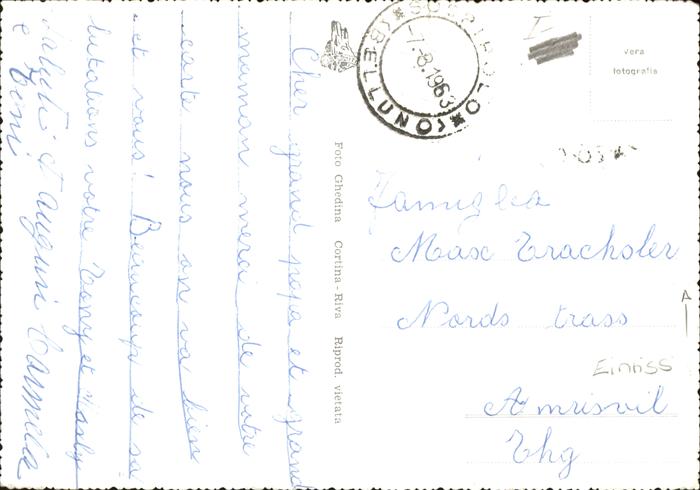 Cher grand papa et grand
maman merci de votre
carte nous on va bien
et vous! Beaucoup de sa
lutations votre Tony et
Saluti et auguri Carmela
e Toni
Foto Ghedina Cortina - Riva Riprod. vietata
(BELLUNO)
-7.8.1963
I-
vera
fotografia
Famiglia
Max Tracholer
Nords trass
A
Einriss
Amrisvil
Thg